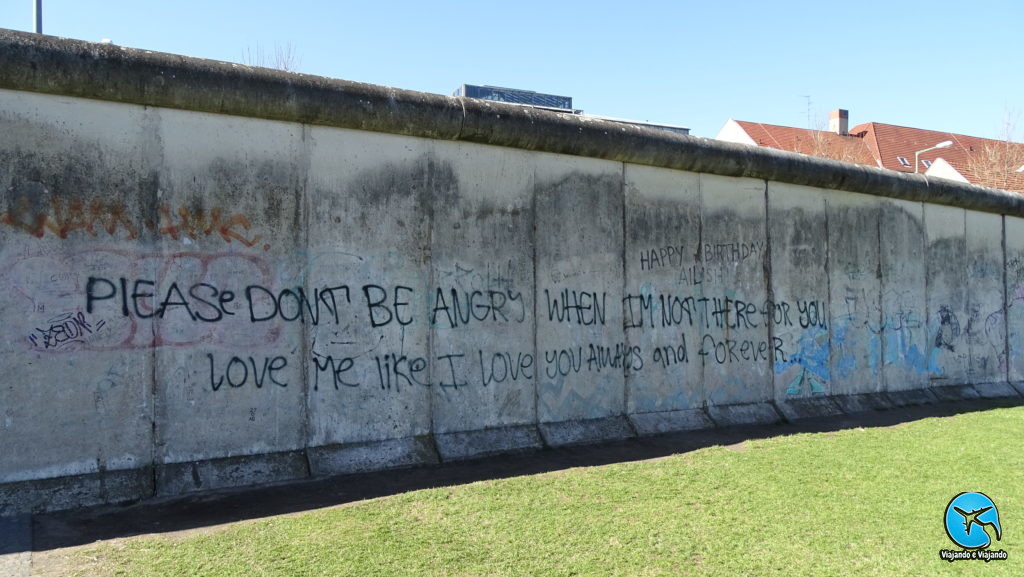 HAPPY BIRTHDAY
PlEASe DONT BE ANGRY WHEN I'M NOT THere for YOU
love me like I love you Always and forever.
Viajando e Viajando